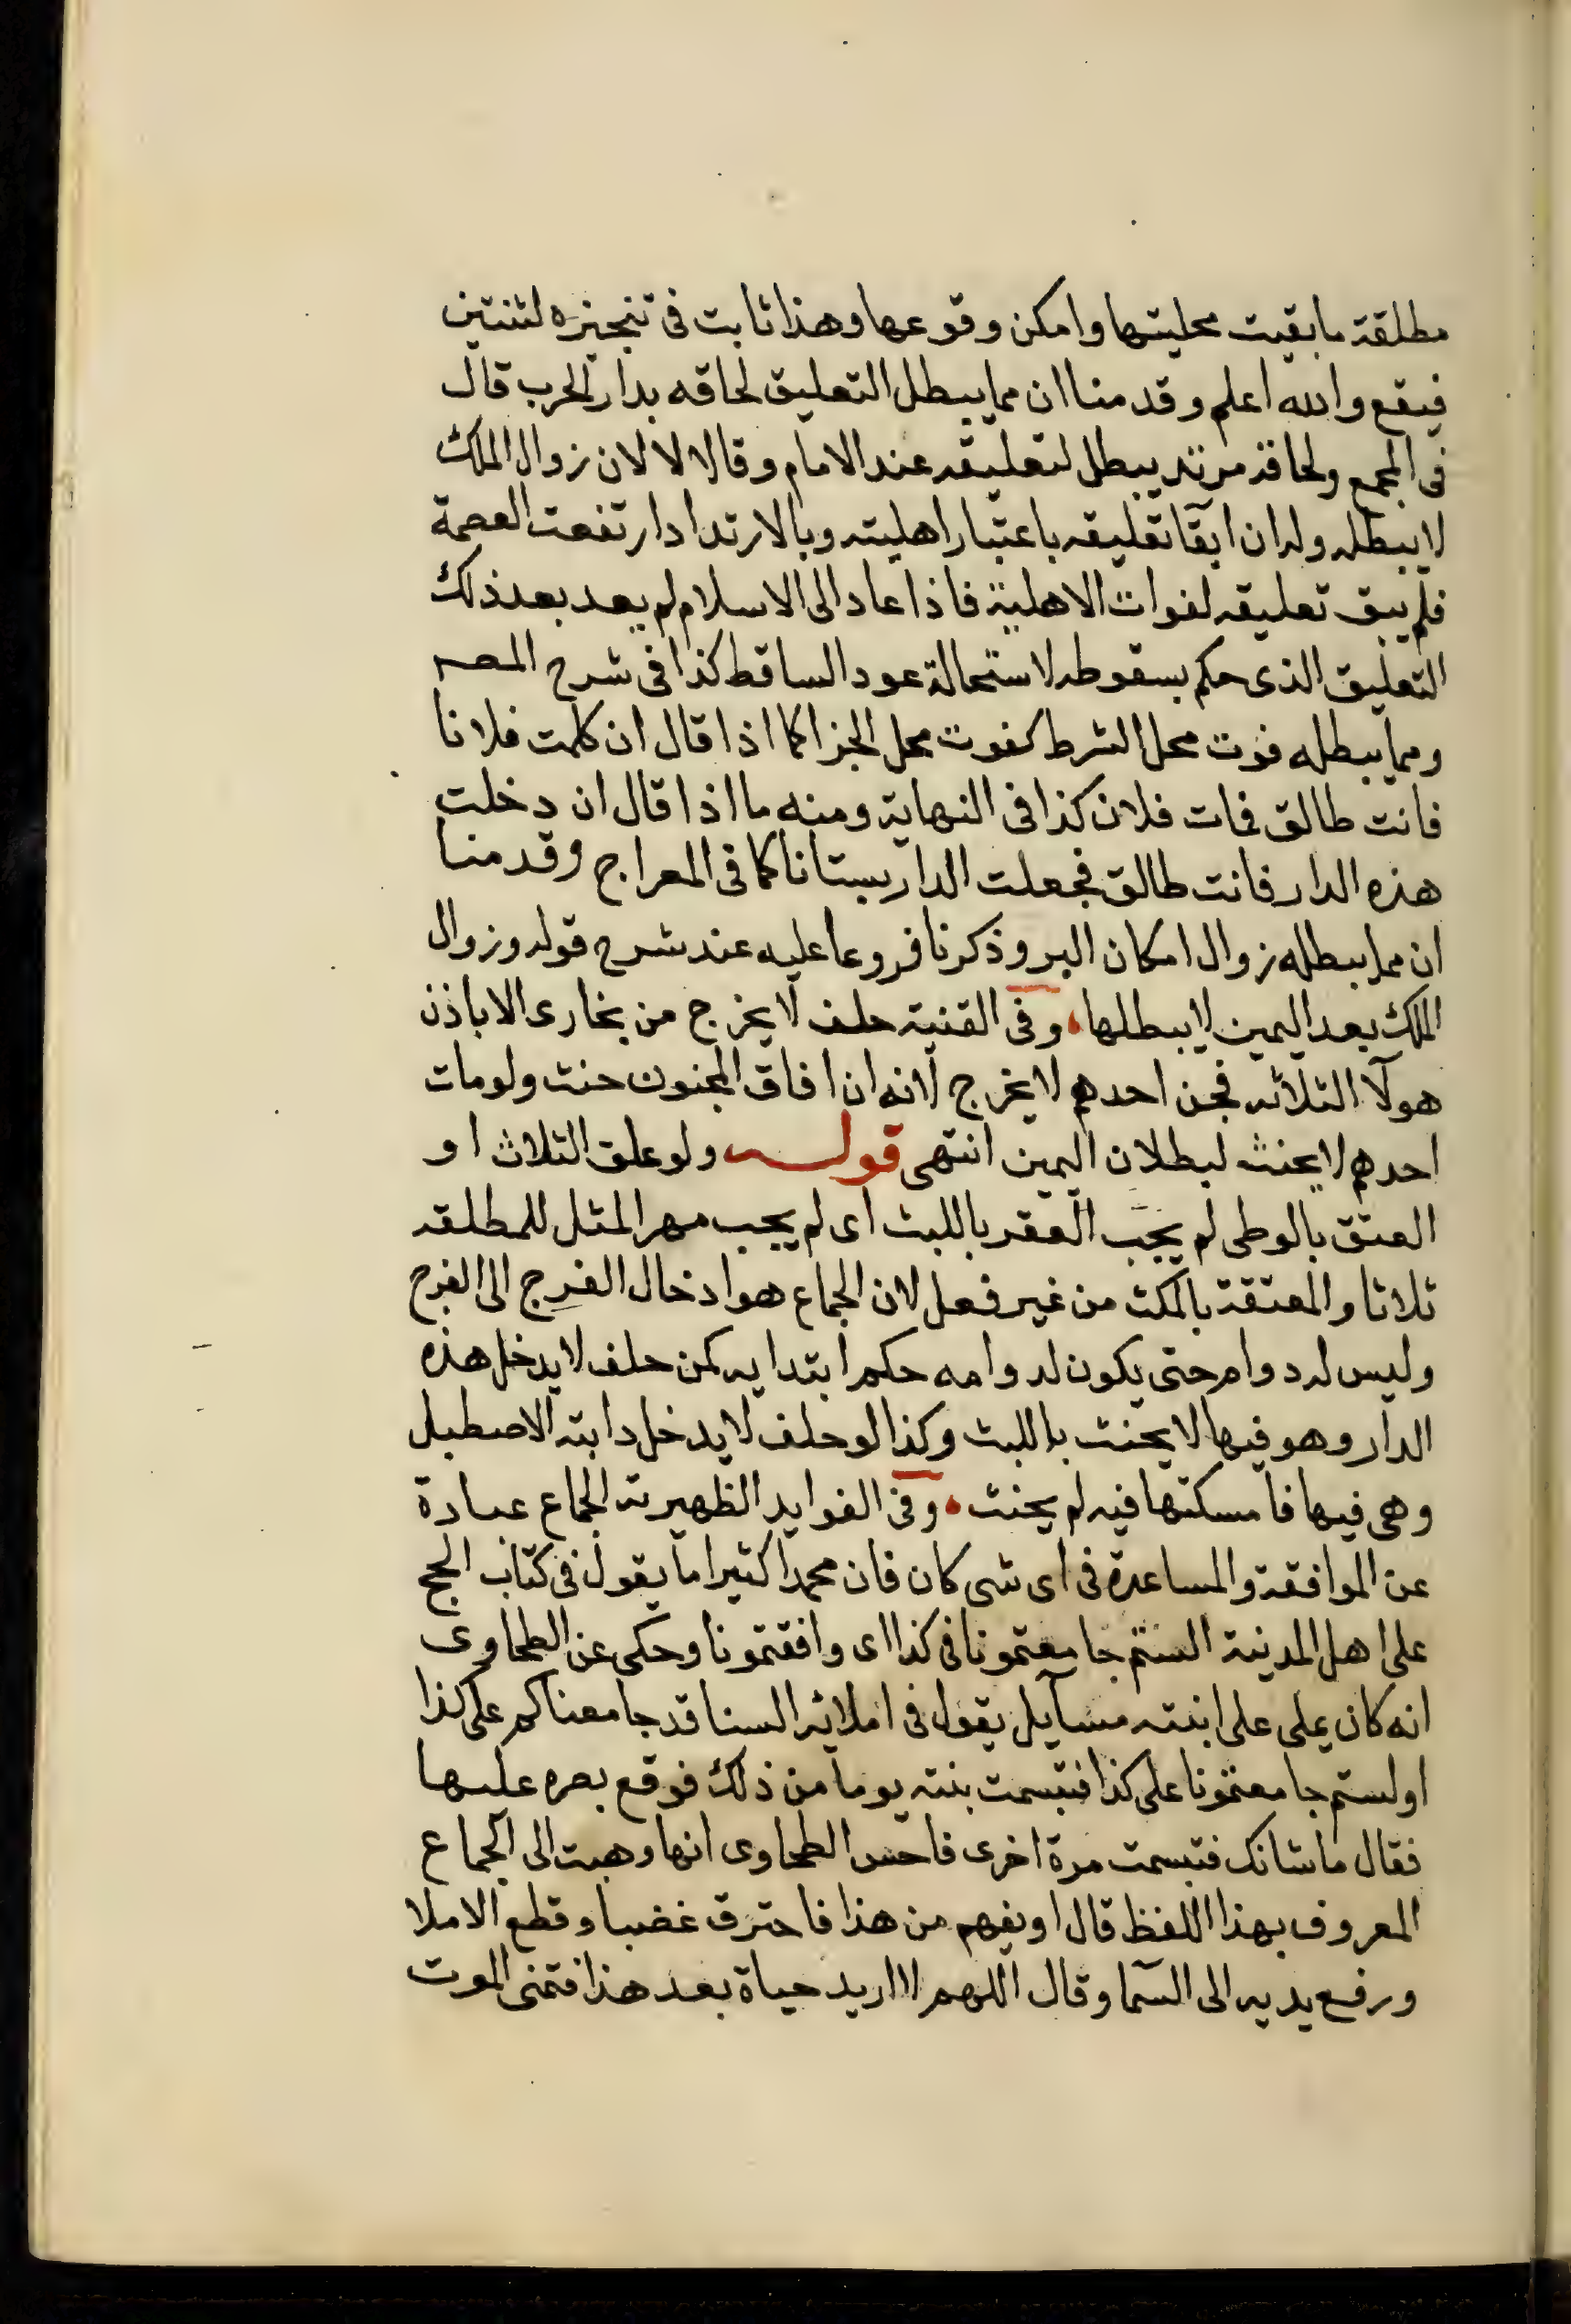 مطلقة ما بقيت محليتها وامكن وقوعها وهذا ثابت فى تنجيزه لثنتين
فيقع والله اعلم وقدمنا ان مما يبطل التعليق لحاقه بدار الحرب قال
فى المجمع ولحاقه مرتد يبطل لتعليقه عند الامام وقالا لا لان زوال الملك
لا يبطله وله ان ابقا تعليقه باعتبار اهليته وبالارتداد ارتفعت العصمة
فلم يبق تعليقه لفوات الاهلية فاذا عاد الى الاسلام لم يعد بعد ذلك
التعليق الذى حكم بسقوطه لاستحالة عود الساقط كذا فى شرح المصـ
ومما يبطله فوت محل الشرط كفوت محل الجزا كما اذا قال ان كلمت فلانا
فانت طالق فمات فلان كذا فى النهاية ومنه ما اذا قال ان دخلت
هذه الدار فانت طالق فجعلت الدار بستانا كما فى المعراج وقدمنا
ان مما يبطله زوال امكان البر وذكرنا فروعا عليه عند شرح قوله وزوال
الملك بعد اليمين لا يبطلها، وفى القنية حلف لا يخرج من بخارى الا باذن
هولآ الثلاثه فجن احدهم لا يخرج لانه ان افاق المجنون حنث ولو مات
احدهم لا يحنث لبطلان اليمين انتهى قولـــه ولو علق الثلاث او
العتق بالوطى لم يجب العقر باللبث اى لم يجب مهر المثل للمطلقه
ثلاثا والمعتقة بالمكث من غير فعل لان الجماع هو ادخال الفرج الى الفرج
وليس له دوام حتى يكون لدوامه حكم ابتدايه كمن حلف لا يدخل هذه
الدار وهو فيها لا يحنث باللبث وكذا لو حلف لا يدخل دابته الاصطبل
وهى فيها فامسكتها فيه لم يحنث، وفى الفوايد الظهيرية الجماع عبارة
عن الموافقة والمساعدة فى اى شى كان فان محمدا كثيرا ما يقول فى كتاب الحجج
على اهل المدينة الستم جامعتمونا فى كذا اى وافقتمونا وحكى عن الطحاوى
انه كان يملى على ابنته مسآيل يقول فى املائه السنا قد جامعناكم على كذا
اولستم جامعتمونا على كذا فتبسمت بنته يوما من ذلك فوقع بصره عليها
فقال ما شانك فتبسمت مرة اخرى فاحس الطحاوى انها وهبت الى الجماع
المعروف بهذا اللفظ قال اويفهم من هذا فاحترق غضبا وقطع الاملا
ورفع يديه الى السمآ وقال اللهم لا اريد حياة بعد هذا فتمنى الموت